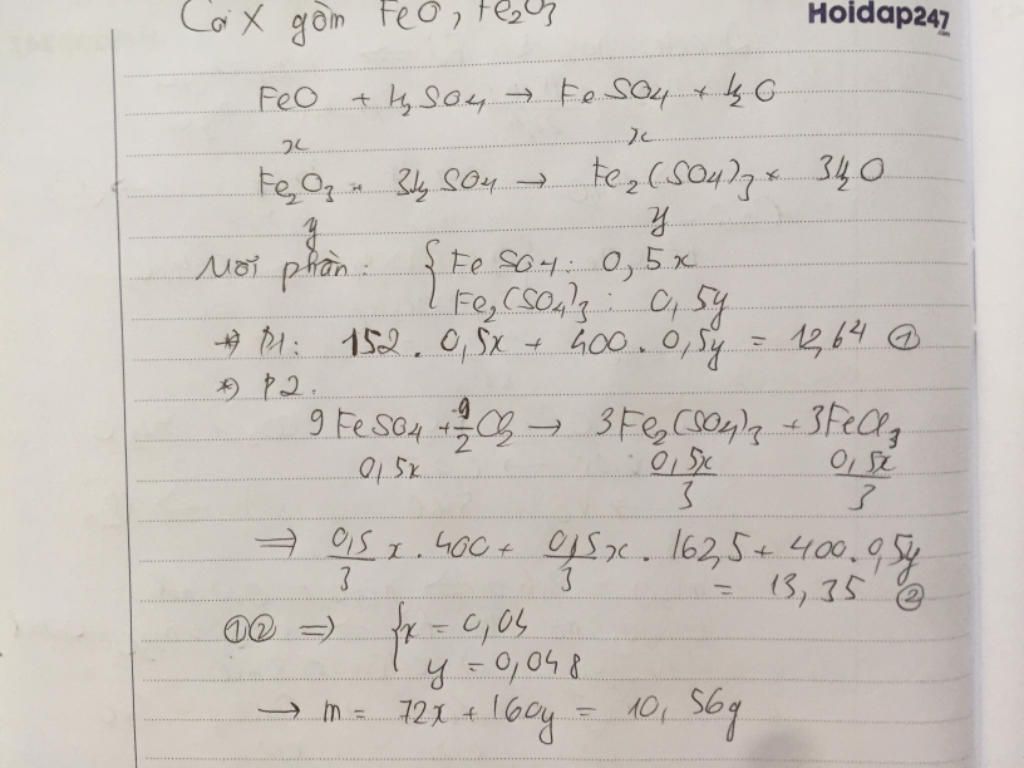 Coi X gồm FeO, Fe2O3
Hoidap247
.com
FeO + H2SO4 → FeSO4 + H2O
x x
Fe2O3 + 3H2SO4 → Fe2(SO4)3 + 3H2O
y y
Mỗi phần: { FeSO4: 0,5x
Fe2(SO4)3: 0,5y
*) P1: 152. 0,5x + 400. 0,5y = 12,64 ①
*) P2.
9FeSO4 + 9/2 Cl2 → 3Fe2(SO4)3 + 3FeCl3
0,5x 0,5x/3 0,5x/3
⇒ 0,5/3 x. 400 + 0,5/3 x. 162,5 + 400. 0,5y
= 13,35 ②
①② ⇒ { x = 0,04
y = 0,048
→ m = 72x + 160y = 10,56g